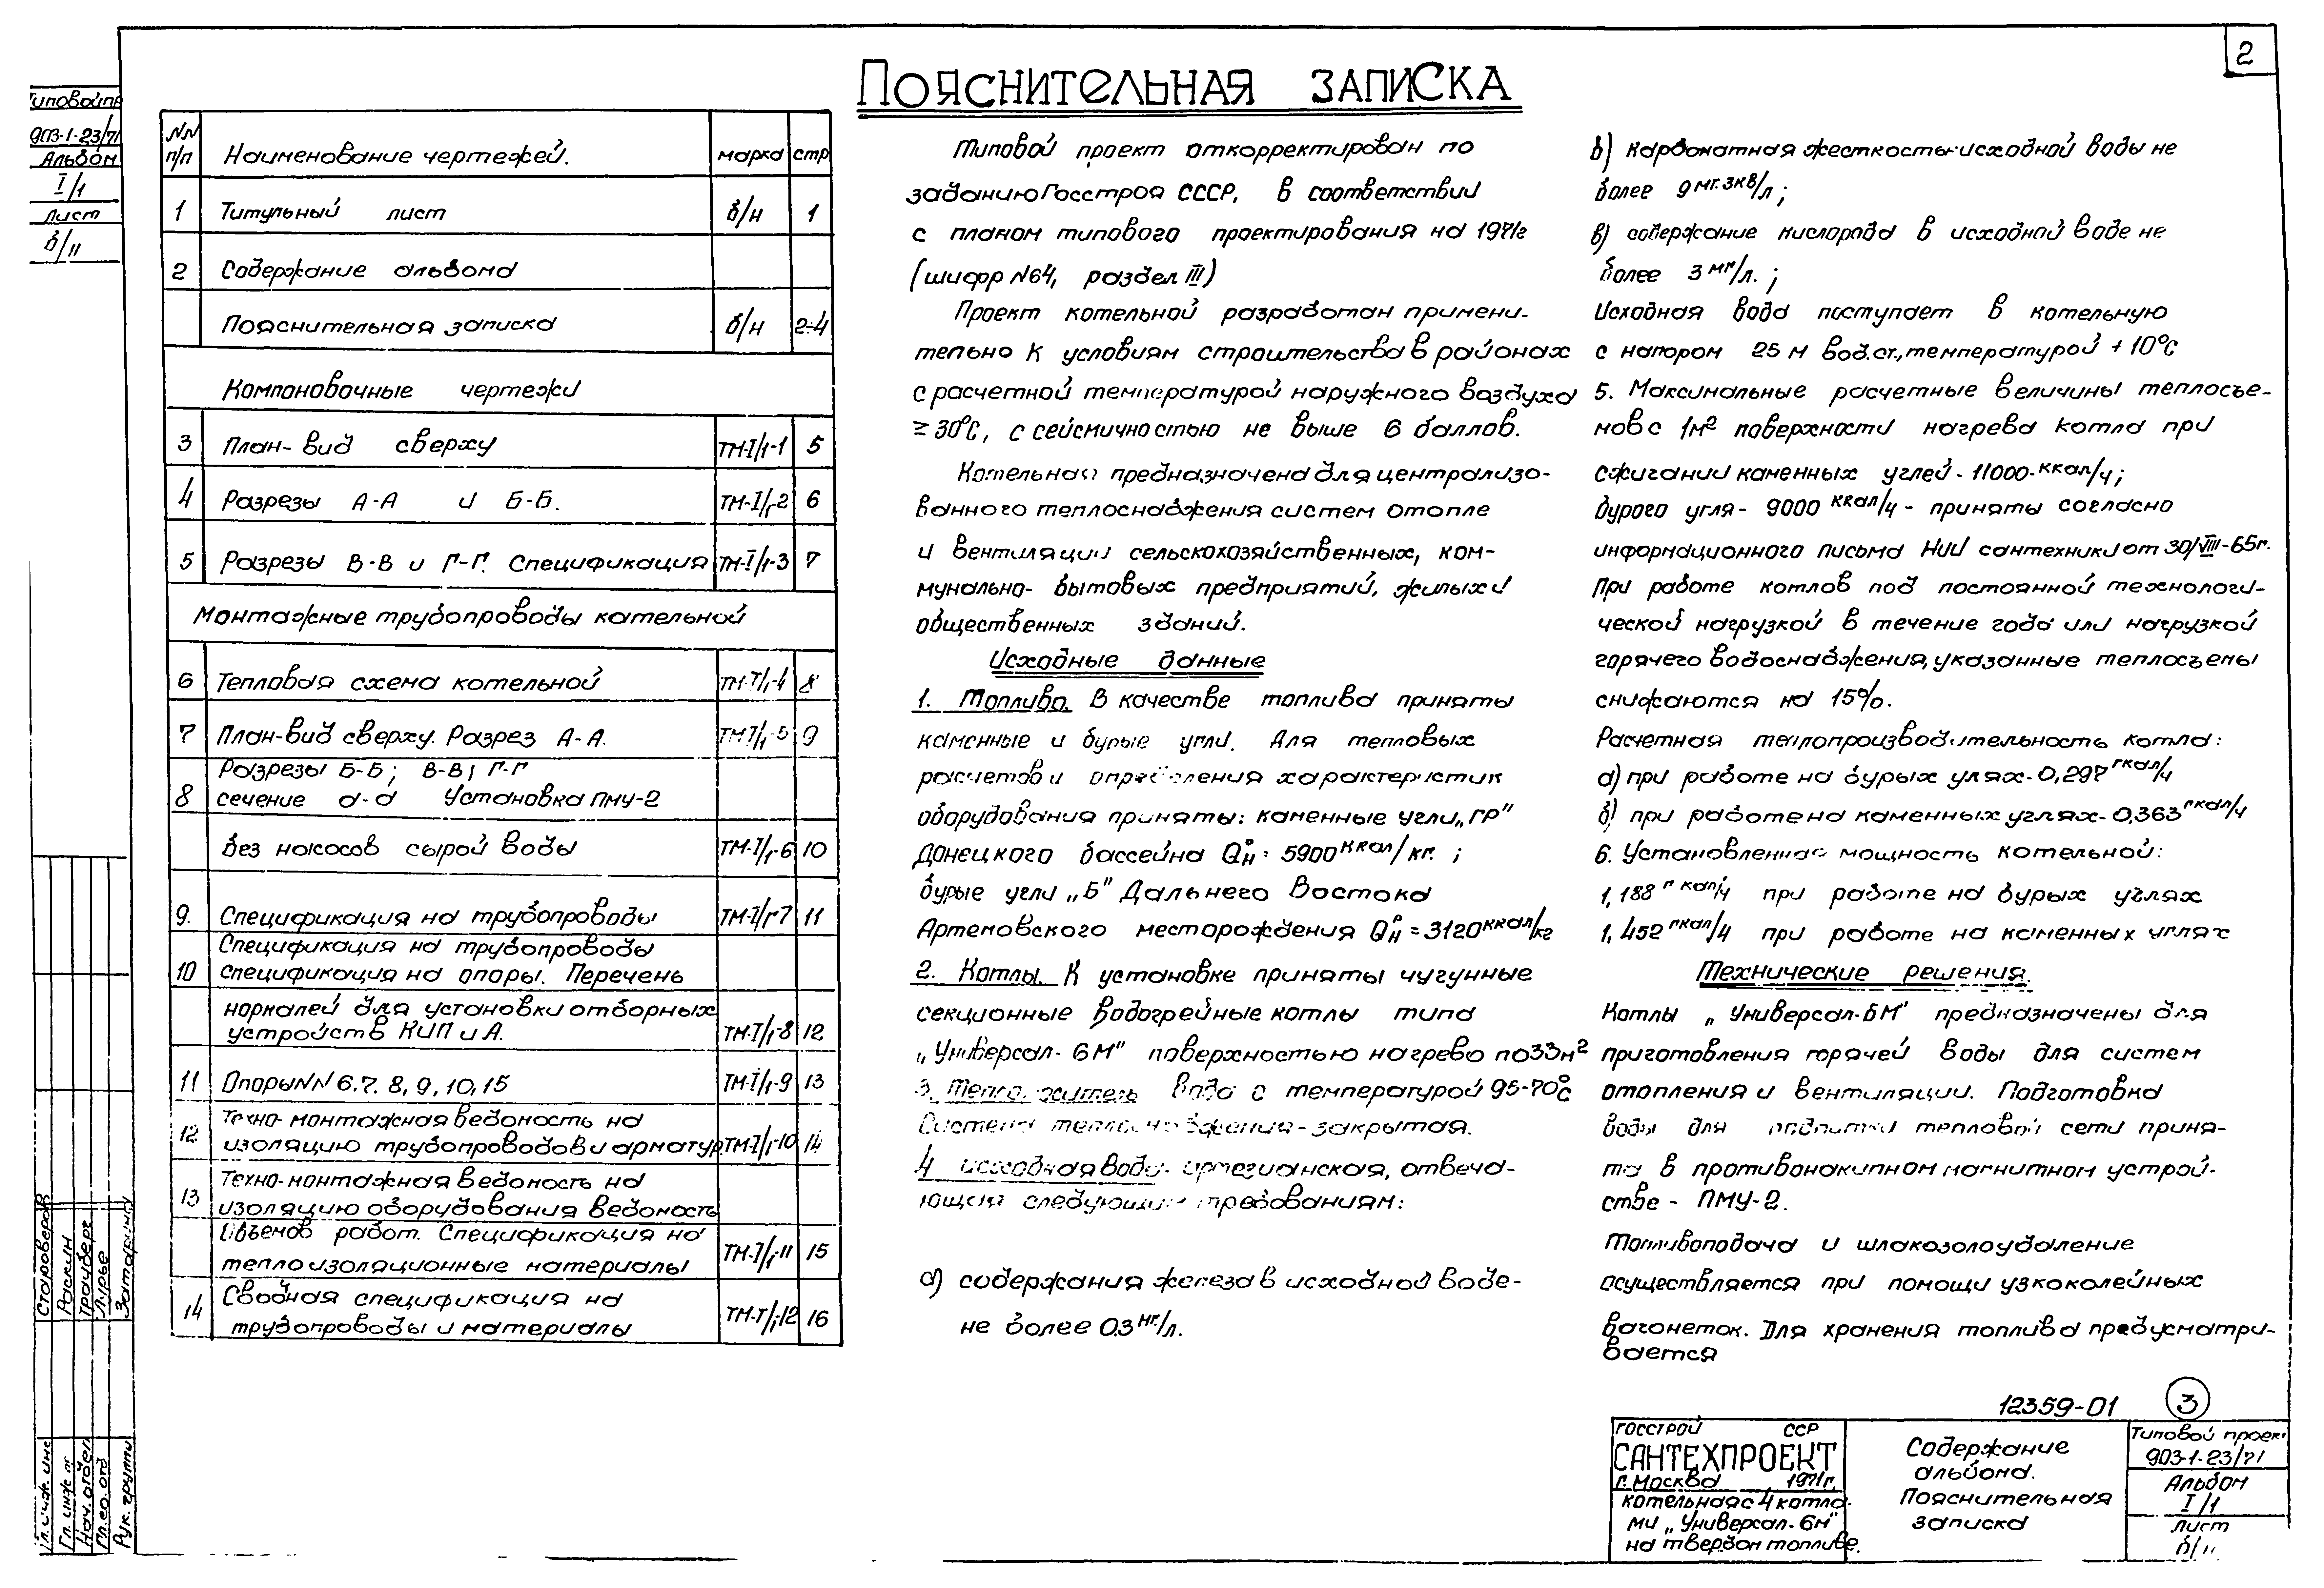 2
Типовой пр
903-1-23/71
Альбом
I/1
Лист
б/н
Пояснительная записка
NN п/п Наименование чертежей. марка стр
1 Титульный лист б/н 1
2 Содержание альбома
Пояснительная записка б/н 2÷4
Компоновочные чертежи
3 План-вид сверху ТМ-I/1-1 5
4 Разрезы А-А и Б-Б. ТМ-I/1-2 6
5 Разрезы В-В и Г-Г. Спецификация ТМ-I/1-3 7
Монтажные трубопроводы котельной
6 Тепловая схема котельной ТМ-I/1-4 8
7 План-вид сверху. Разрез А-А. ТМ-I/1-5 9
Разрезы Б-Б; В-В; Г-Г
8 сечение а-а Установка ПМУ-2
без насосов сырой воды ТМ-I/1-6 10
9. Спецификация на трубопроводы ТМ-I/1-7 11
Спецификация на трубопроводы
10 спецификация на опоры. Перечень
нормалей для установки отборных
устройств КИП и А. ТМ-I/1-8 12
11 Опоры NN 6.7. 8, 9, 10, 15 ТМ-I/1-9 13
Техно-монтажная ведомость на
12 изоляцию трубопроводов и арматур ТМ-I/1-10 14
Техно-монтажная ведомость на
13 изоляцию оборудования ведомость
объемов работ. Спецификация на
теплоизоляционные материалы ТМ-I/1-11 15
Сводная спецификация на
14 трубопроводы и материалы ТМ-I/1-12 16
Типовой проект откорректирован по
заданию Госстроя СССР, в соответствии
с планом типового проектирования на 1971г
(шифр N64, раздел III)
Проект котельной разработан примени-
тельно к условиям строительства в районах
с расчетной температурой наружного воздуха
≥30°С, с сейсмичностью не выше 6 баллов.
Котельная предназначена для централизо-
ванного теплоснабжения систем отопле
и вентиляции сельскохозяйственных, ком-
мунально-бытовых предприятий, жилых и
общественных зданий.
Исходные данные
1. Топливо. В качестве топлива приняты
каменные и бурые угли. Для тепловых
расчетов и определения характеристик
оборудования приняты: каменные угли „ГР"
Донецкого бассейна Qрн = 5900 ккал/кг. ;
бурые угли „Б" Дальнего Востока
Артемовского месторождения Qрн = 3120 ккал/кг
2. Котлы. К установке приняты чугунные
секционные водогрейные котлы типа
„Универсал-6М" поверхностью нагрева по 33м²
3. Теплоноситель вода с температурой 95-70°С
Система теплоснабжения-закрытая.
4 исходная вода- артезианская, отвеча-
ющая следующим требованиям:
а) содержания железа в исходной воде-
не более 0.3 мг/л.
б) карбонатная жесткость-исходной воды не
более 9 мг.экв/л;
в) содержание кислорода в исходной воде не
более 3 мг/л. ;
Исходная вода поступает в котельную
с напором 25 м вод.ст., температурой +10°С
5. Максимальные расчетные величины теплосъе-
мов с 1м² поверхности нагрева котла при
сжигании каменных углей - 11000-ккал/ч;
бурого угля - 9000 ккал/ч - приняты согласно
информационного письма НИИ сантехники от 30/VIII-65г.
При работе котлов под постоянной технологи-
ческой нагрузкой в течение года или нагрузкой
горячего водоснабжения, указанные теплосъемы
снижаются на 15%.
Расчетная теплопроизводительность котла:
а) при работе на бурых углях-0,297 гкал/ч
б) при работе на каменных углях-0,363 гкал/ч
6. Установленная мощность котельной:
1,188 гкал/ч при работе на бурых углях
1,452 гкал/ч при работе на каменных углях
Технические решения.
Котлы „Универсал-6М" предназначены для
приготовления горячей воды для систем
отопления и вентиляции. Подготовка
воды для подпитки тепловой сети приня-
та в противонакипном магнитном устрой-
стве - ПМУ-2.
Топливоподача и шлакозолоудаление
осуществляется при помощи узкоколейных
вагонеток. Для хранения топлива предусматри-
вается
12359-01 3
Госстрой ССР
САНТЕХПРОЕКТ
г. Москва 1971г.
котельная с 4 котла-
ми „Универсал-6м"
на твердом топливе.
Содержание
альбома.
Пояснительная
записка
Типовой проект
903-1-23/71
Альбом
I/1
Лист
б/н
Староверов
Раскин
Трауберг
Лурье
Гл. инж. инс
Гл. инж. пр
Нач. отдел
Гл. сп. отд
Рук. группы